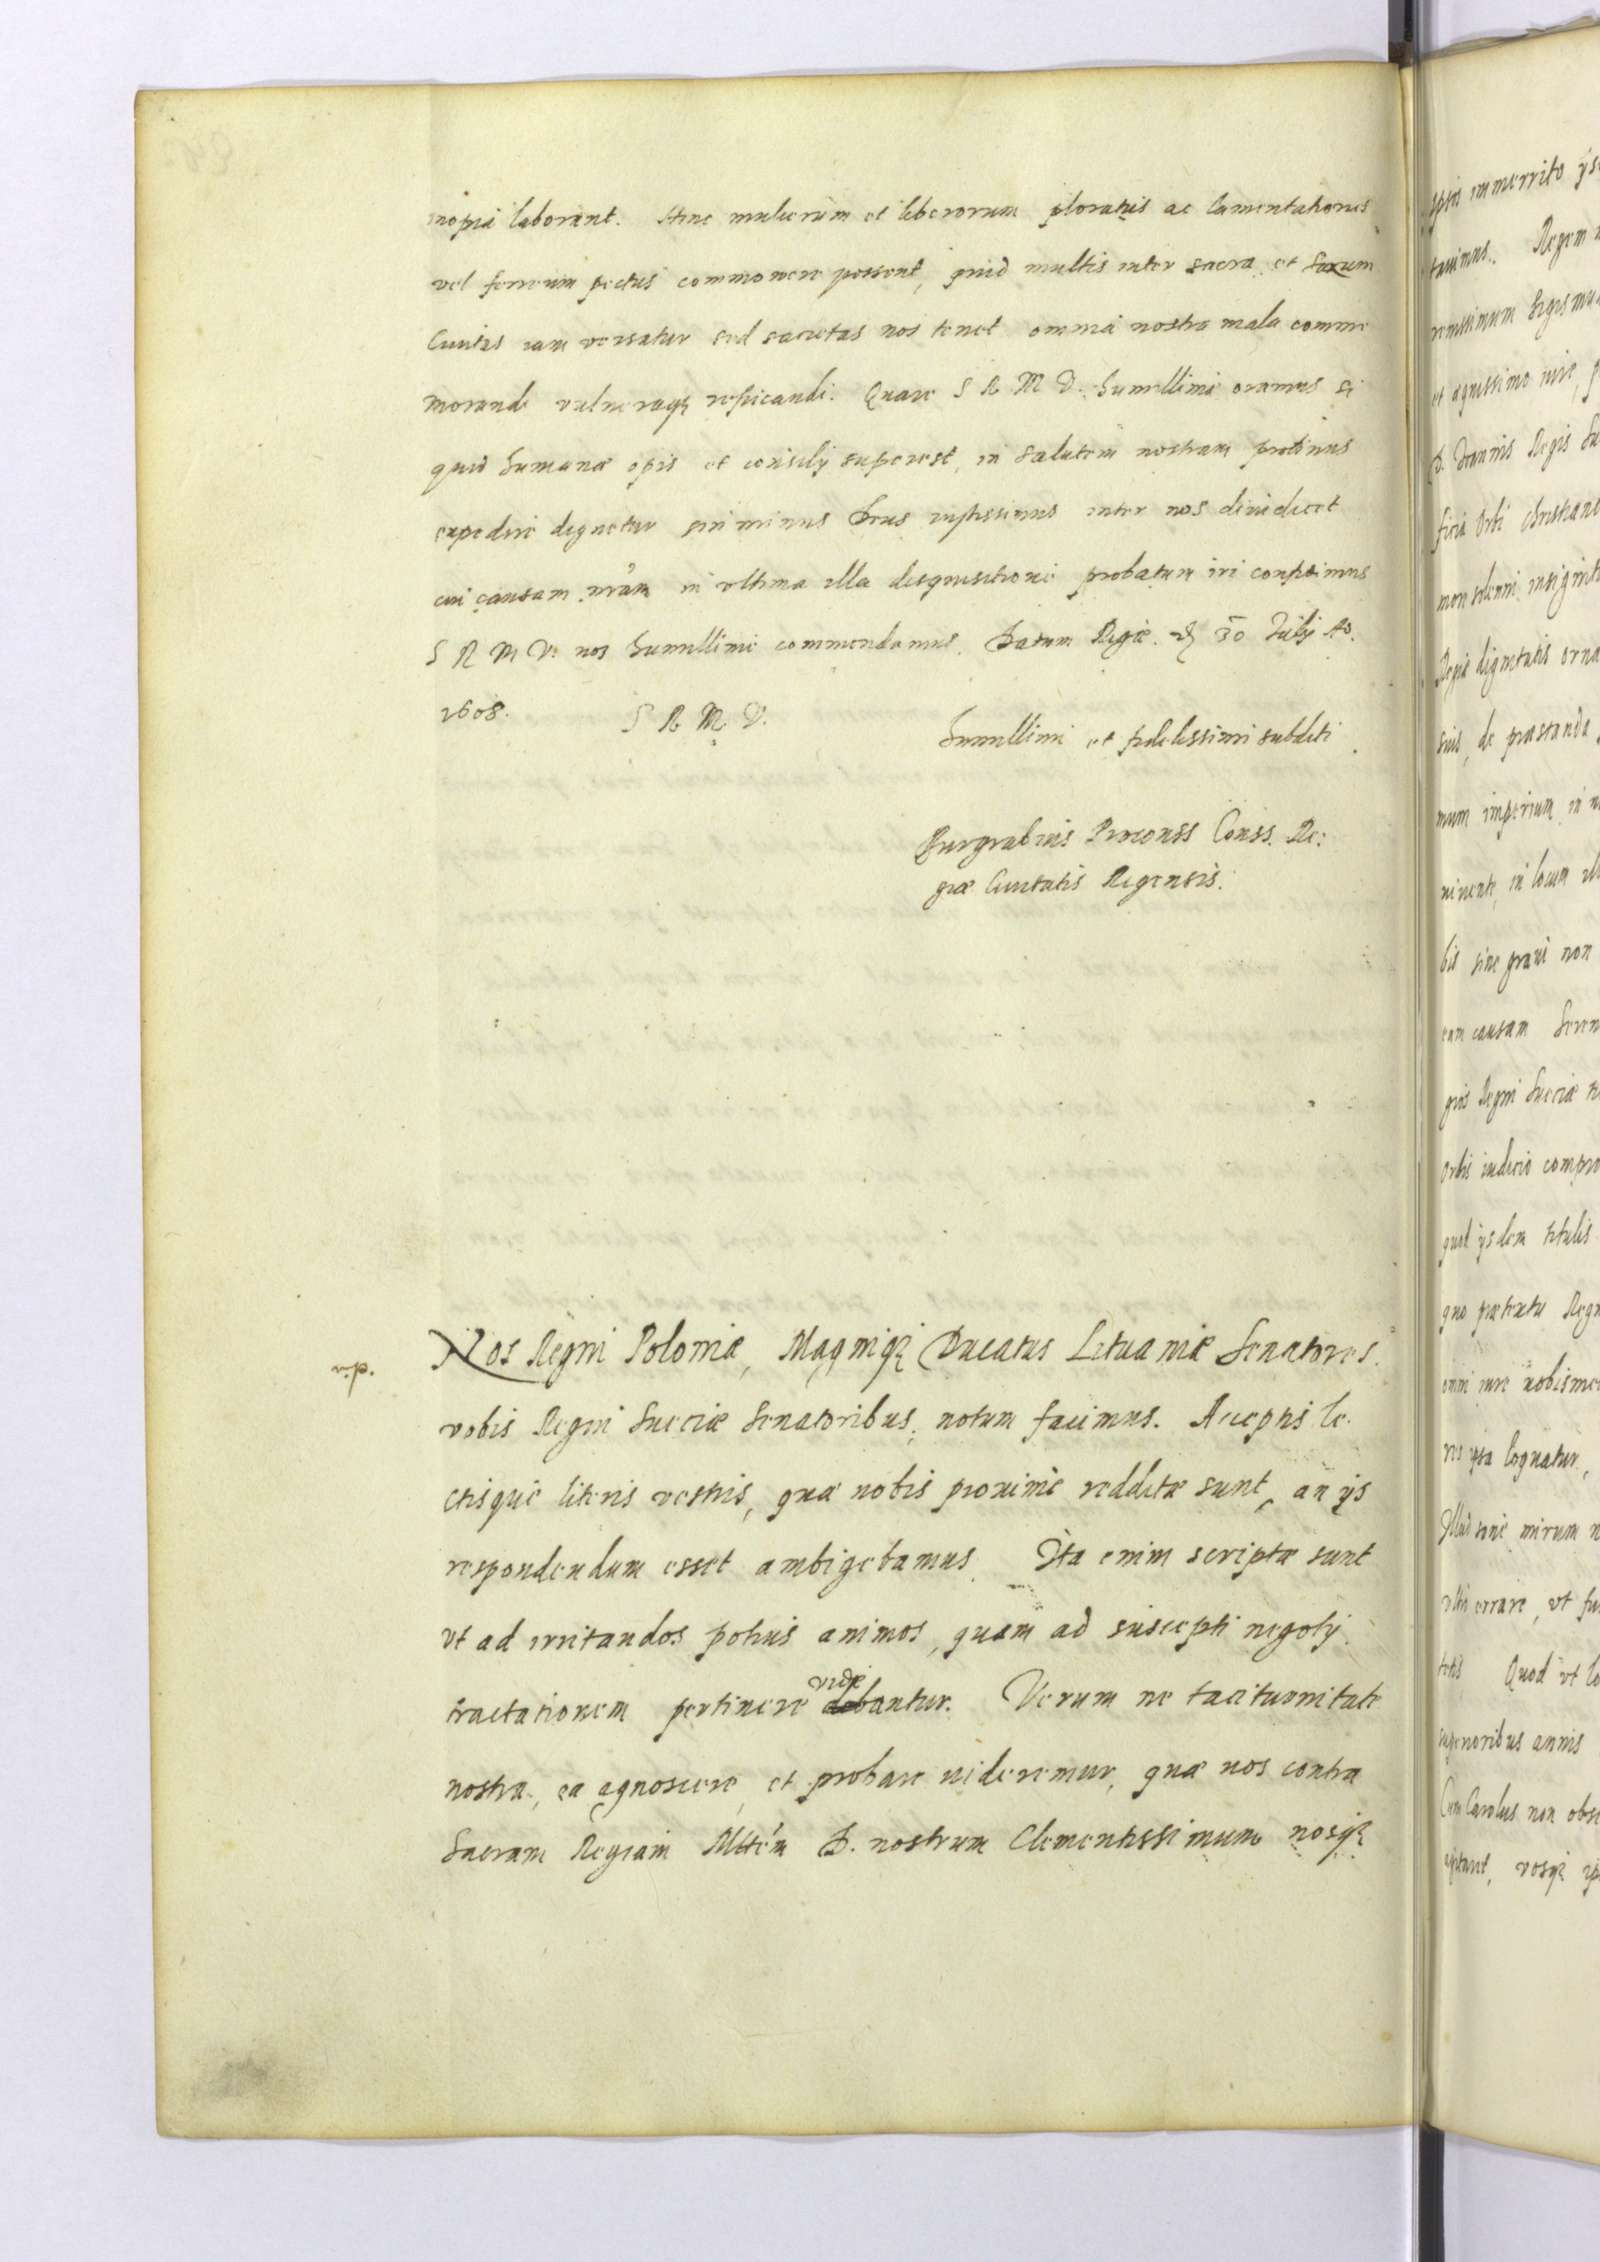 inopia laborant. Hinc mulierum et liberorum ploratus ac lamentationes
vel ferreum pectus commovere possent, quid multis inter sacra et saxum
Civitas iam versatur sed satietas nos tenet omnia nostra mala comme
morandi vulneraq; reficandi. Quare S R M V. humillime oramus si
quid humanæ opis et consilij superest, in salutem nostram protinus
expedire dignetur sin minus Deus iustissimus inter nos diiudicet
cui causam nram in ultima illa disquisitione probatum iri confidimus
S R M V. nos humillime commendamus. Datum Rigæ 30 Julij Ao.
1608. S R M V.
humillimi et fidelissimi subditi
Burgrabius Proconss Conss. Re:
giæ Civitatis Rigensis.
Nos Regni Poloniæ, Magniq; Ducatus Lituaniæ Senatores
vobis Regni Sueciæ Senatoribus, notum facimus. Acceptis le
ctisque literis vestris, quæ nobis proxime redditæ sunt, an ijs
respondendum esset ambigebamus. Ita enim scriptæ sunt
vt ad irritandos potius animos, quam ad suscepti negotij
tractationem pertinere videbantur. Verum ne taciturnitate
nostra, ea agnoscere, et probare uideremur, quæ uos contra
Sacram Regiam Mttém D. nostrum Clementissimum nosq;
ipsos immerito
tauimus. Regem
et æquissimo iure,
D. Joannis Regis
ficia Orbi Christiano
Regiæ dignitatis orna
suis, de præstanda
mum imperium in
niuente, in locum
bis sine graui non
eam causam Seren
gnis Regni Sueciæ
Orbis iudicio compro
quod ijsdem titulis
quo prætextu Regn
omni iure nobisme
res ipsa loquatur,
Illud sane mirum
errare, vt
Quod vt
superioribus annis
Cum Carolus non obs
vosq;